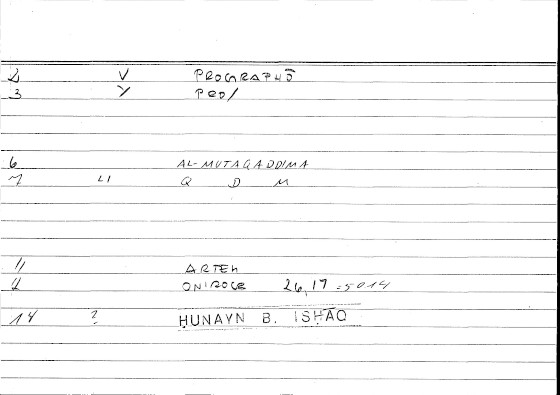 2 V PROGRAPHŌ
3 Y PRO/
6 AL-MUTAQADDIMA
7 LI Q D M
11 ARTEM
12 ONIROCR 26,17 = 50 14
14 ? ḤUNAYN B. ISḤĀQ